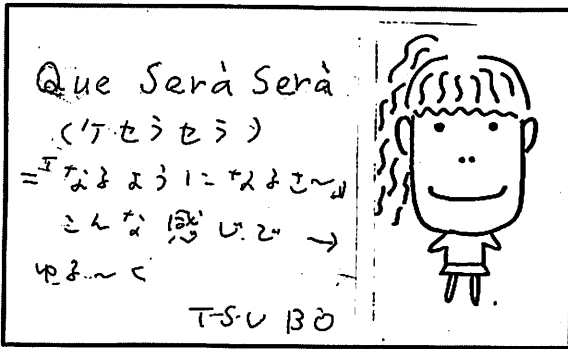 Que Serà Serà
(ケセラセラ)
= なるようになるさ〜
こんな感じで →
ゆる〜く
T-S-U BO